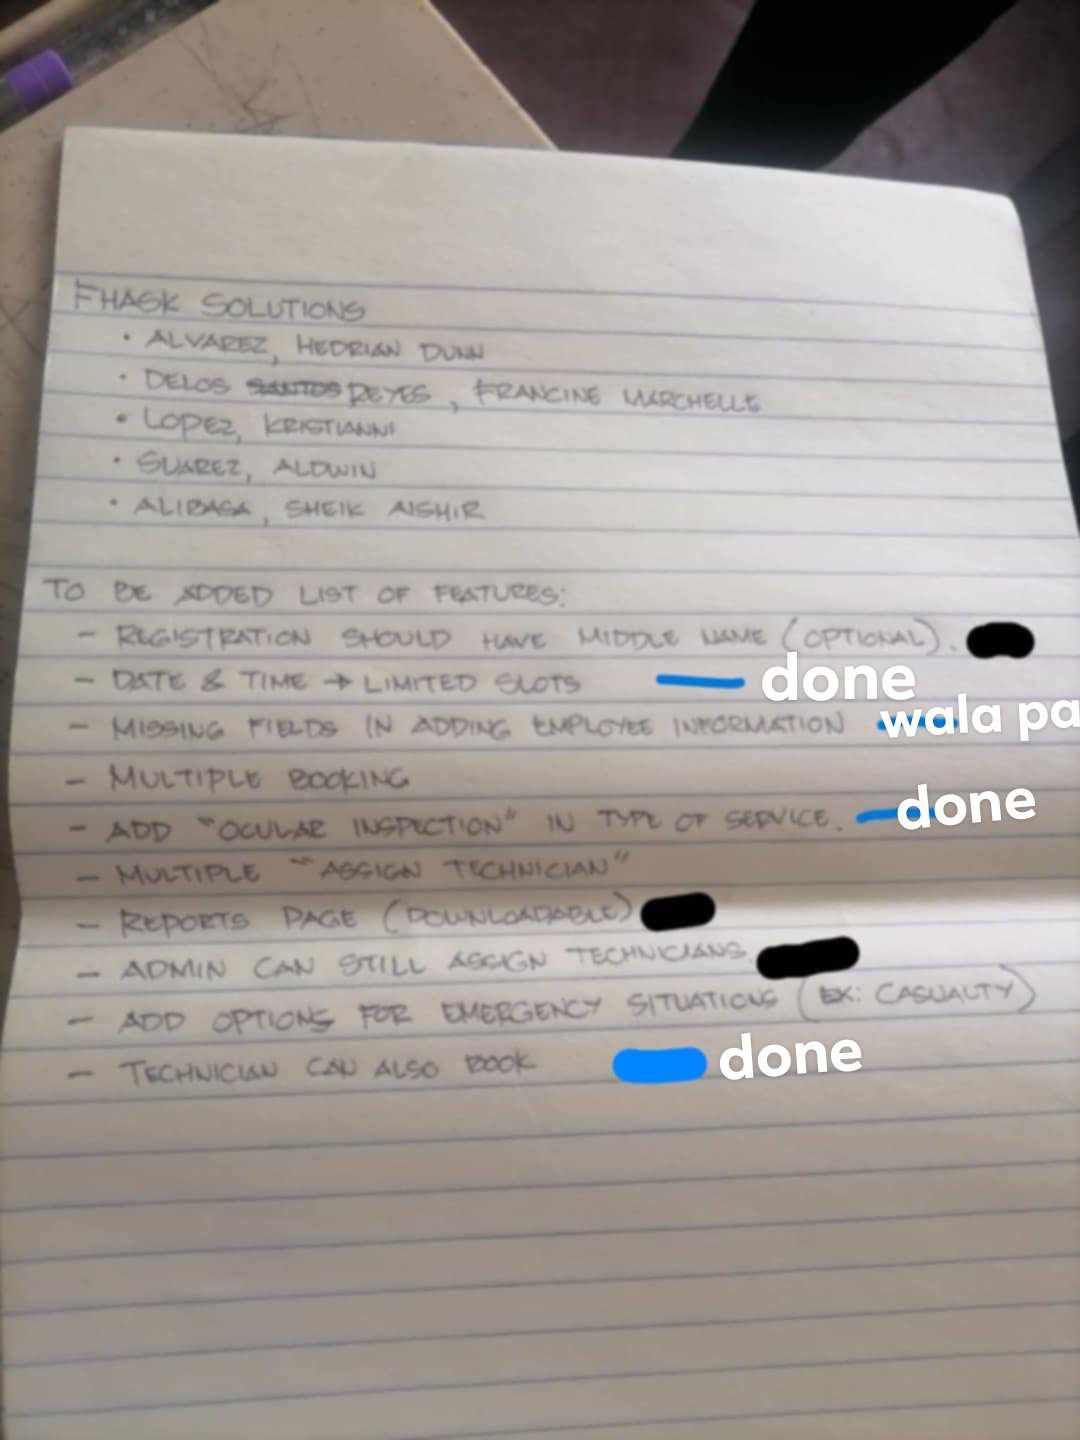 FHASK SOLUTIONS
• ALVAREZ, HEDRIAN DUNN
• DELOS SANTOS REYES, FRANCINE MARCHELLE
• LOPEZ, KRISTIANNI
• SUAREZ, ALDWIN
• ALIBASA, SHEIK AISHIR
TO BE ADDED LIST OF FEATURES:
- REGISTRATION SHOULD HAVE MIDDLE NAME (OPTIONAL).
- DATE & TIME → LIMITED SLOTS done
- MISSING FIELDS IN ADDING EMPLOYEE INFORMATION wala pa
- MULTIPLE BOOKING
- ADD "OCULAR INSPECTION" IN TYPE OF SERVICE. done
- MULTIPLE "ASSIGN TECHNICIAN"
- REPORTS PAGE (DOWNLOADABLE)
- ADMIN CAN STILL ASSIGN TECHNICIANS
- ADD OPTIONS FOR EMERGENCY SITUATIONS (EX: CASUALTY)
- TECHNICIAN CAN ALSO BOOK done